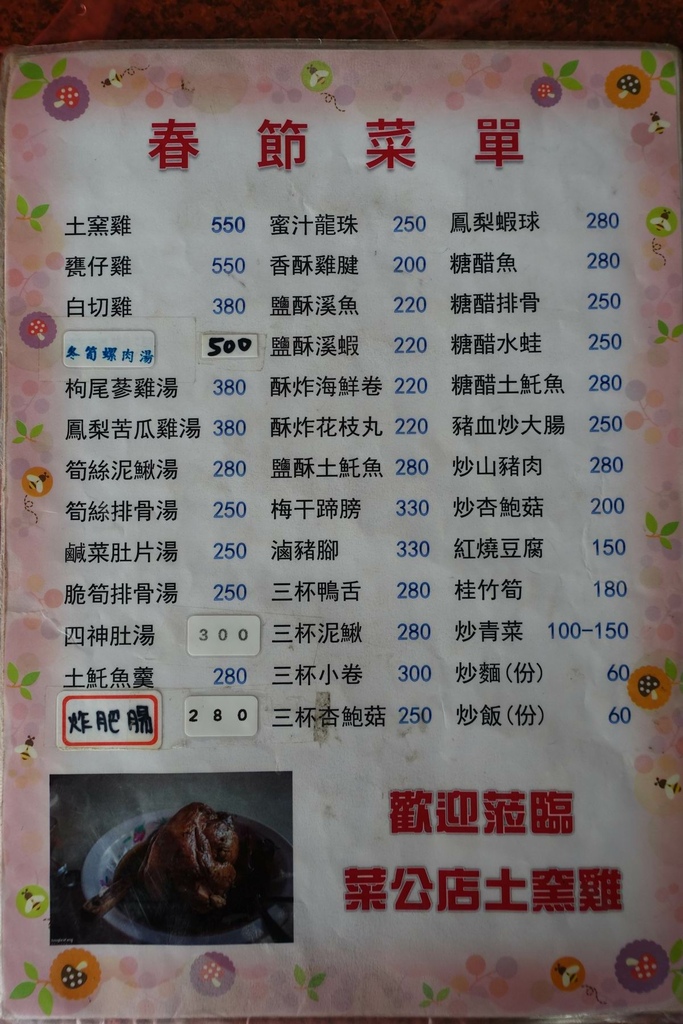 春節菜單
土窯雞 550 蜜汁龍珠 250 鳳梨蝦球 280
甕仔雞 550 香酥雞腱 200 糖醋魚 280
白切雞 380 鹽酥溪魚 220 糖醋排骨 250
冬筍螺肉湯 500 鹽酥溪蝦 220 糖醋水蛙 250
枸尾蔘雞湯 380 酥炸海鮮卷 220 糖醋土魠魚 280
鳳梨苦瓜雞湯 380 酥炸花枝丸 220 豬血炒大腸 250
筍絲泥鰍湯 280 鹽酥土魠魚 280 炒山豬肉 280
筍絲排骨湯 250 梅干蹄膀 330 炒杏鮑菇 200
鹹菜肚片湯 250 滷豬腳 330 紅燒豆腐 150
脆筍排骨湯 250 三杯鴨舌 280 桂竹筍 180
四神肚湯 300 三杯泥鰍 280 炒青菜 100-150
土魠魚羹 280 三杯小卷 300 炒麵(份) 60
炸肥腸 280 三杯杏鮑菇 250 炒飯(份) 60
歡迎蒞臨
菜公店土窯雞